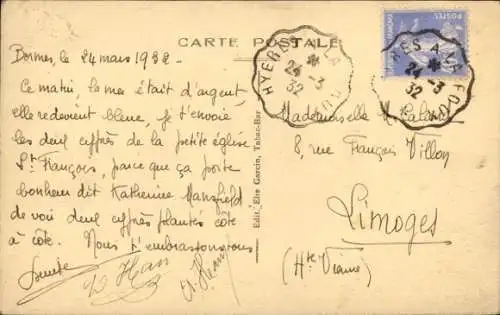 CARTE POSTALE
Bormes, le 24 mars 1932.
Ce matin, la mer était d'argent
elle redevient bleue, je t'envoie
les deux cyprès de la petite église
St François, parce que ça porte
bonheur dit Katherine Mansfield
de voir deux cyprès plantés côte
à côte. Nous t'embrassons tous
HYERES A LA
24-3
32
HYERES A LA FOUX
24-3
32
POSTES
Edit. Elie Garcin, Tabac-Bar
Mademoiselle
8, rue François Villon
Limoges
(Hte Vienne)